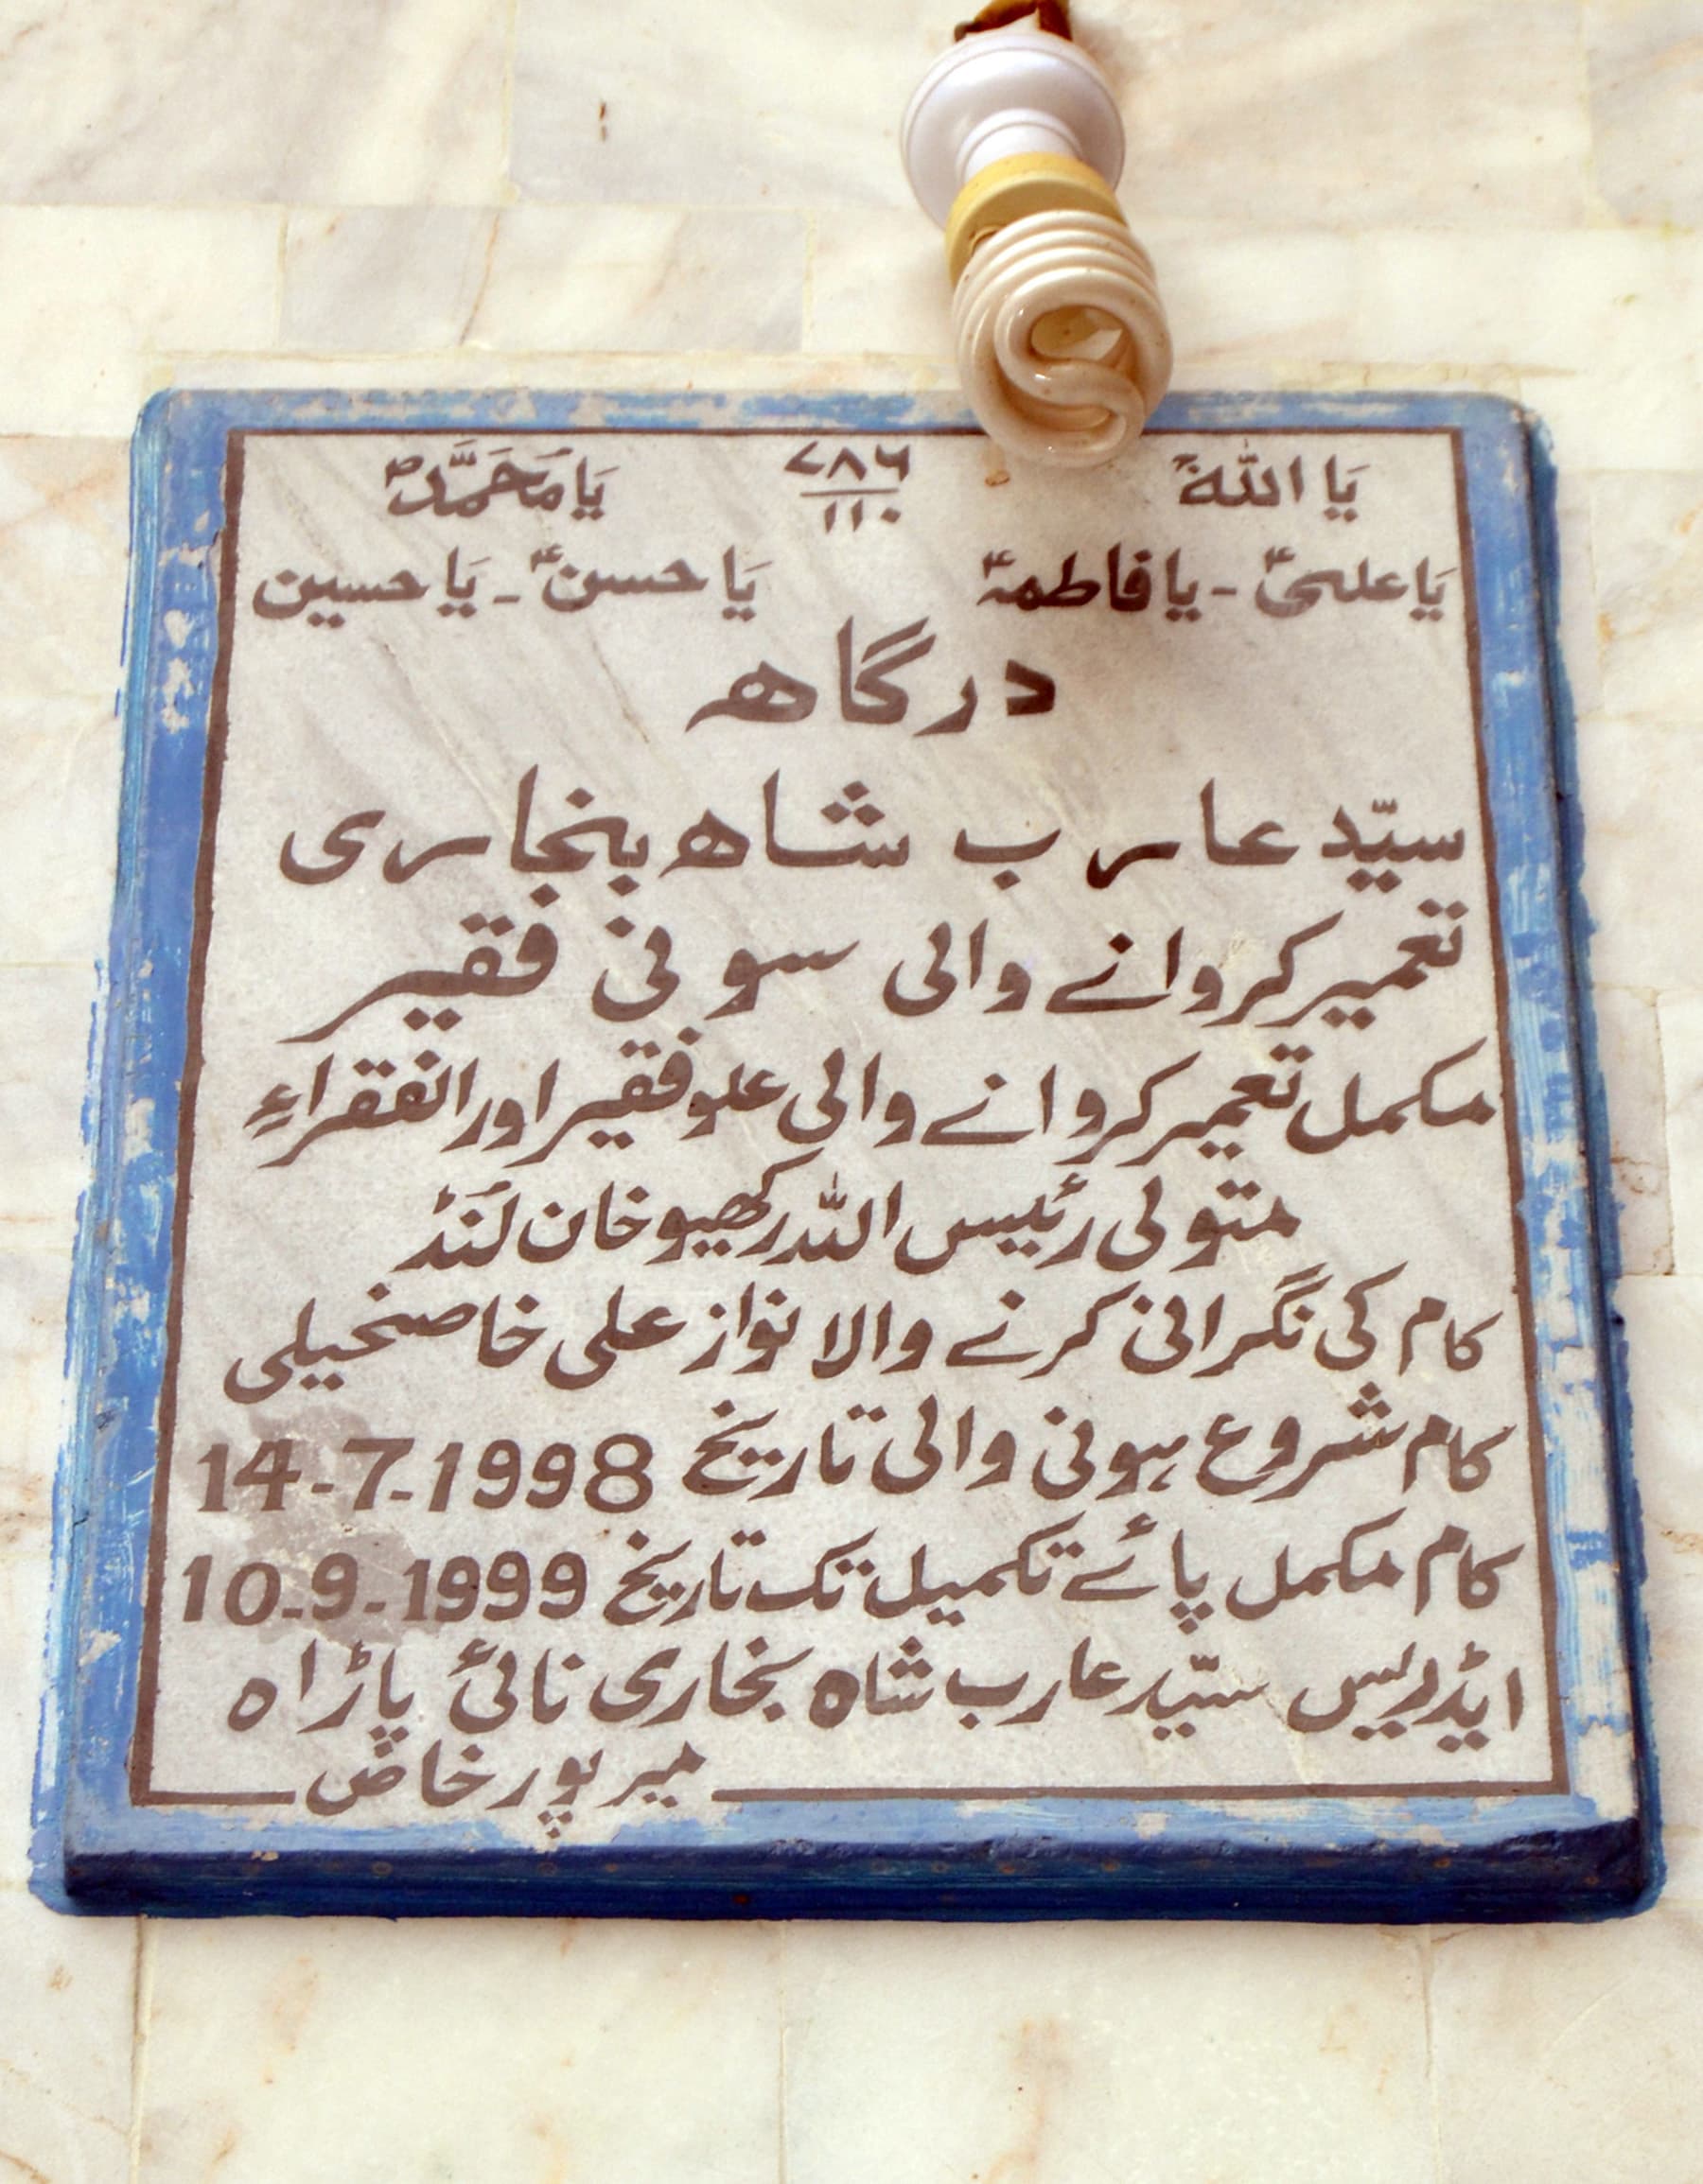 یَا اللّٰہُ ۷۸۶ یَا مَحَمَّدؐ
۱۱۰
یَا علیؑ - یا فاطمہؑ یَا حسنؑ - یَا حسین
درگاھ
سیّد عارب شاھ بنجاری
تعمیر کروانے والی سونی فقیر
مکمل تعمیر کروانے والی علو فقیر اور الفقراءِ
متولی رئیس اللہ رکھیو خان لَنڈ
کام کی نگرانی کرنے والا نواز علی خاصخیلی
کام شروع ہونی والی تاریخ 14-7-1998
کام مکمل پائے تکمیل تک تاریخ 10-9-1999
ایڈریس سیّد عارب شاہ بخاری نائی پاڑاہ
میر پور خاض